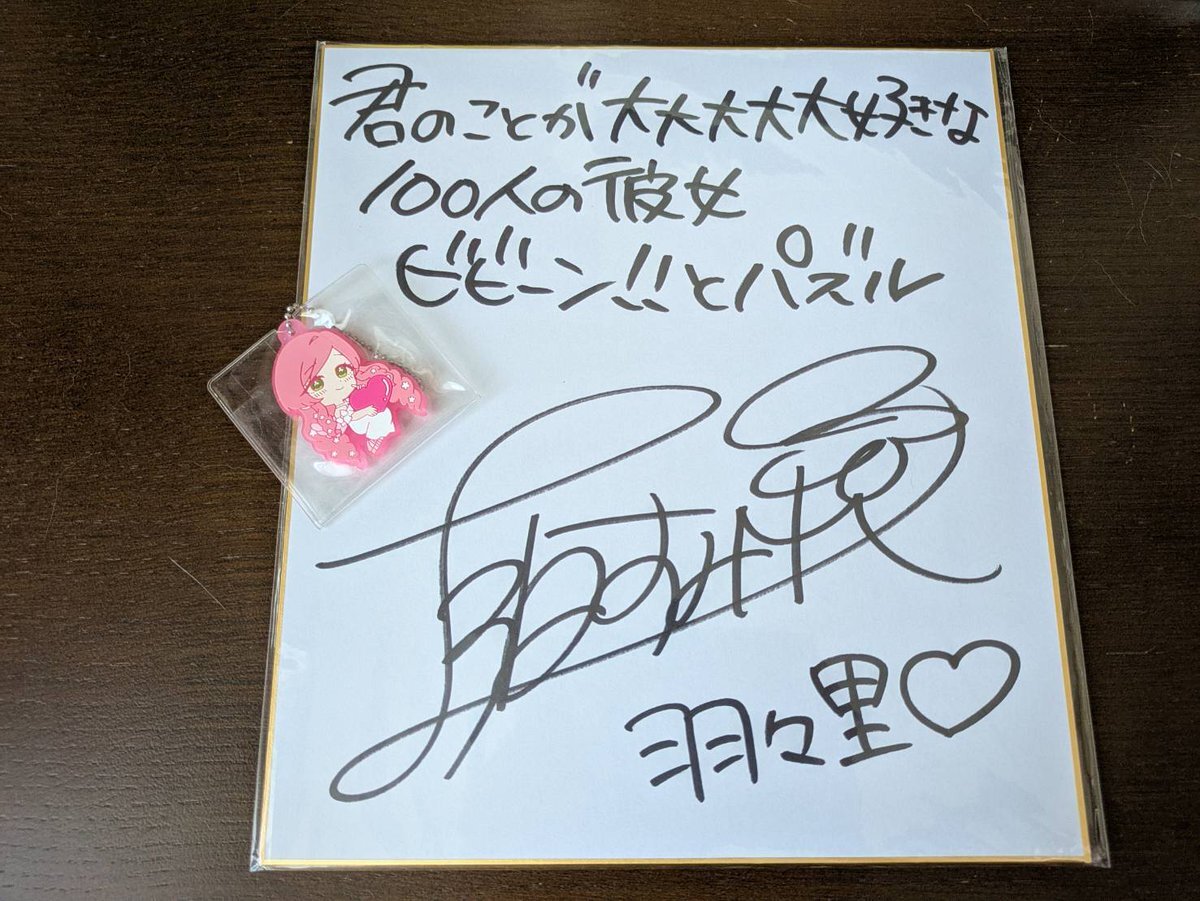 君のことが大大大大大好きな
100人の彼女
ビビーン!!とパズル
羽々里♡